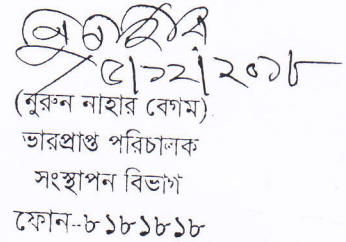 ৫/১২/২০১৮
(নুরুন নাহার বেগম)
ভারপ্রাপ্ত পরিচালক
সংস্থাপন বিভাগ
ফোন--৮১৮১৮১৮